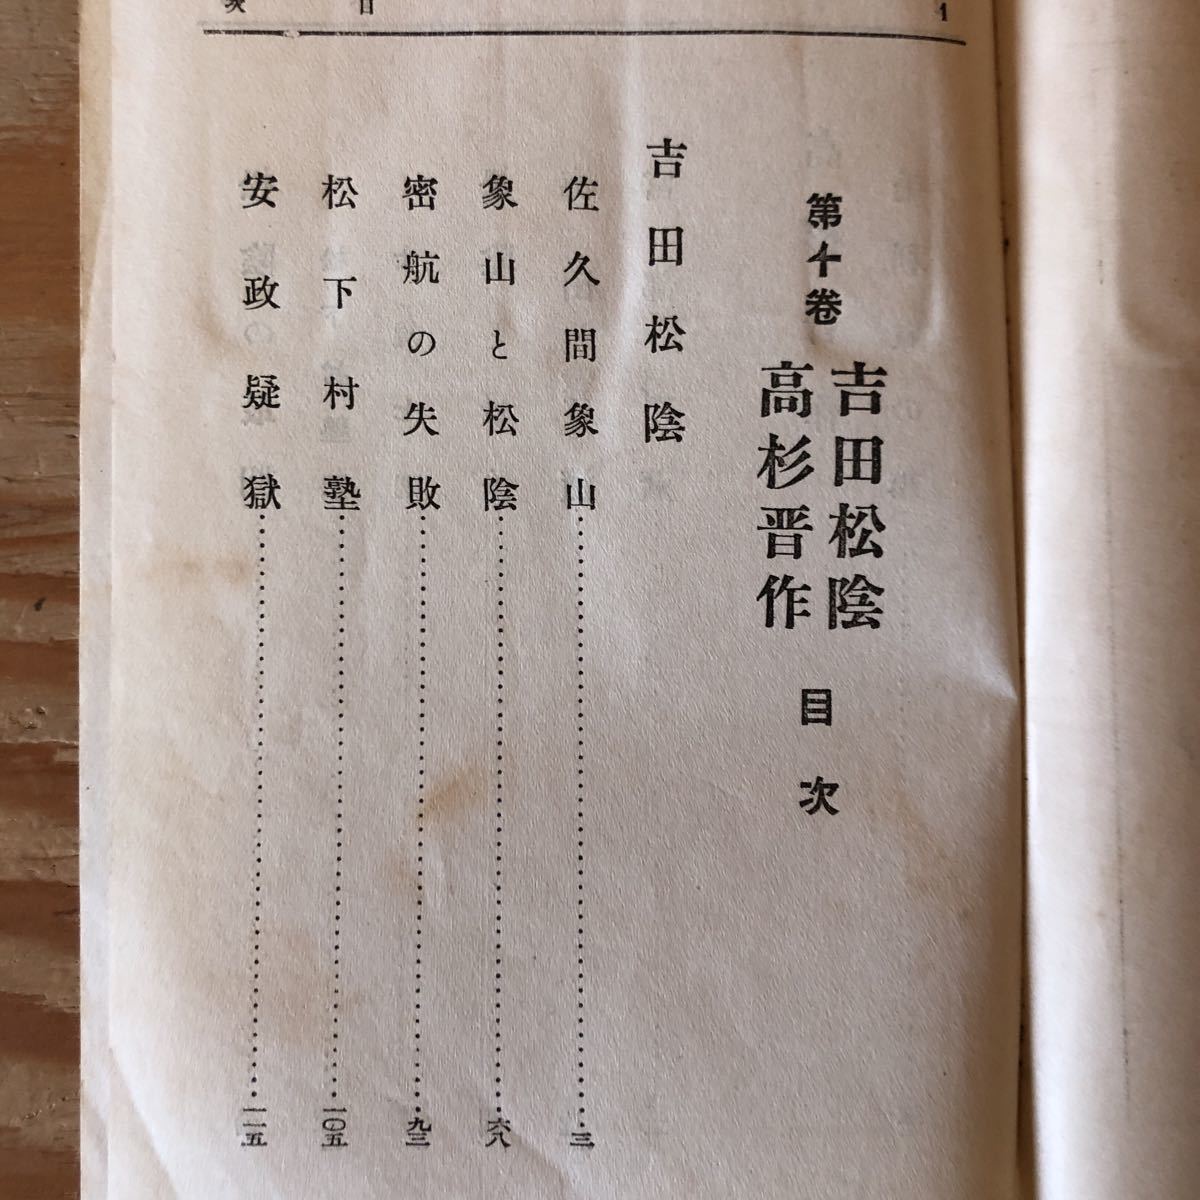 1 目 次
第十卷
吉田松陰
高杉晋作
目次
吉田松陰
佐久間象山……三
象山と松陰……六八
密航の失敗……九三
松下村塾……一〇五
安政の疑獄……一二五